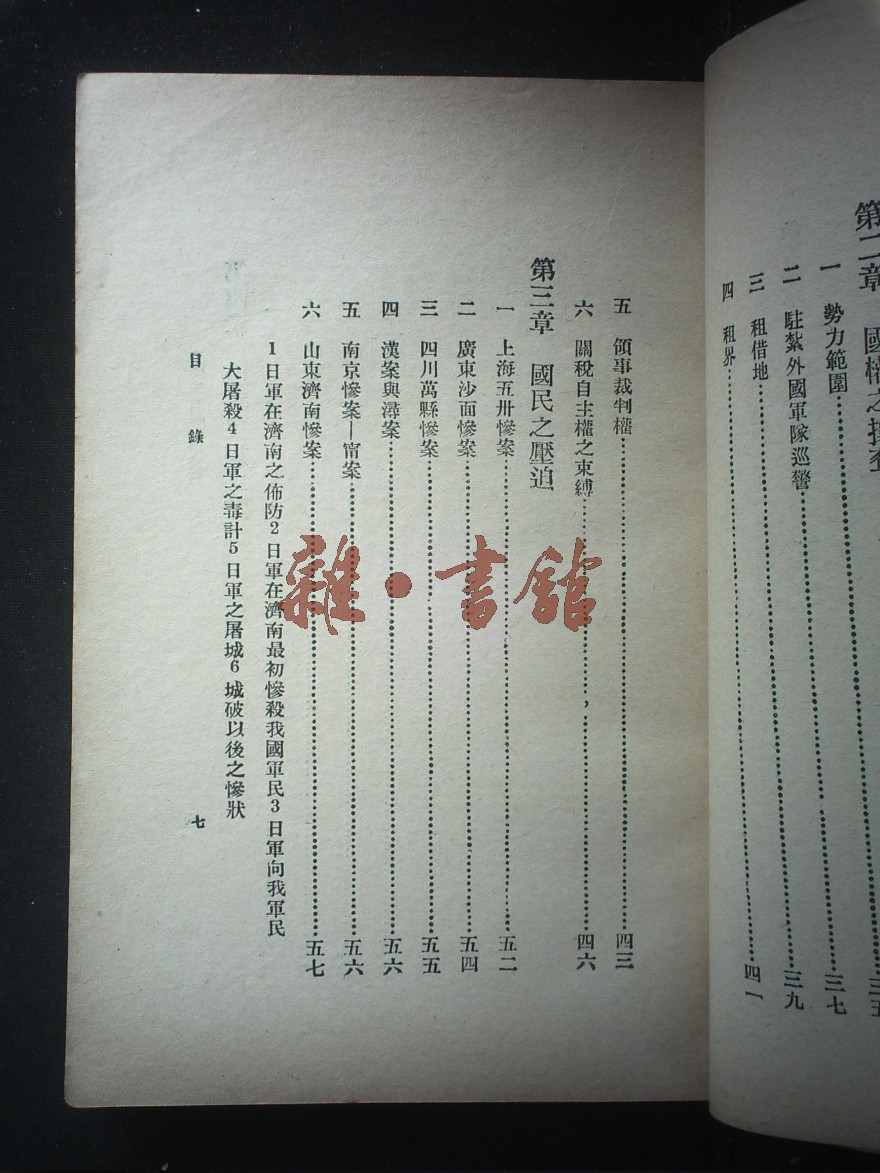 第二章　國權之
一　勢力範圍……三七
二　駐紮外國軍隊巡警……三九
三　租借地
四　租界……四一
五　領事裁判權……四三
六　關稅自主權之束縛……四六
第三章　國民之壓迫
一　上海五卅慘案……五二
二　廣東沙面慘案……五四
三　四川萬縣慘案……五五
四　漢案與潯案……五六
五　南京慘案—甯案……五六
六　山東濟南慘案……五七
1日軍在濟南之佈防2日軍在濟南最初慘殺我國軍民3日軍向我軍民
大屠殺4日軍之毒計5日軍之屠城6城破以後之慘狀
目錄　七
雜·書館